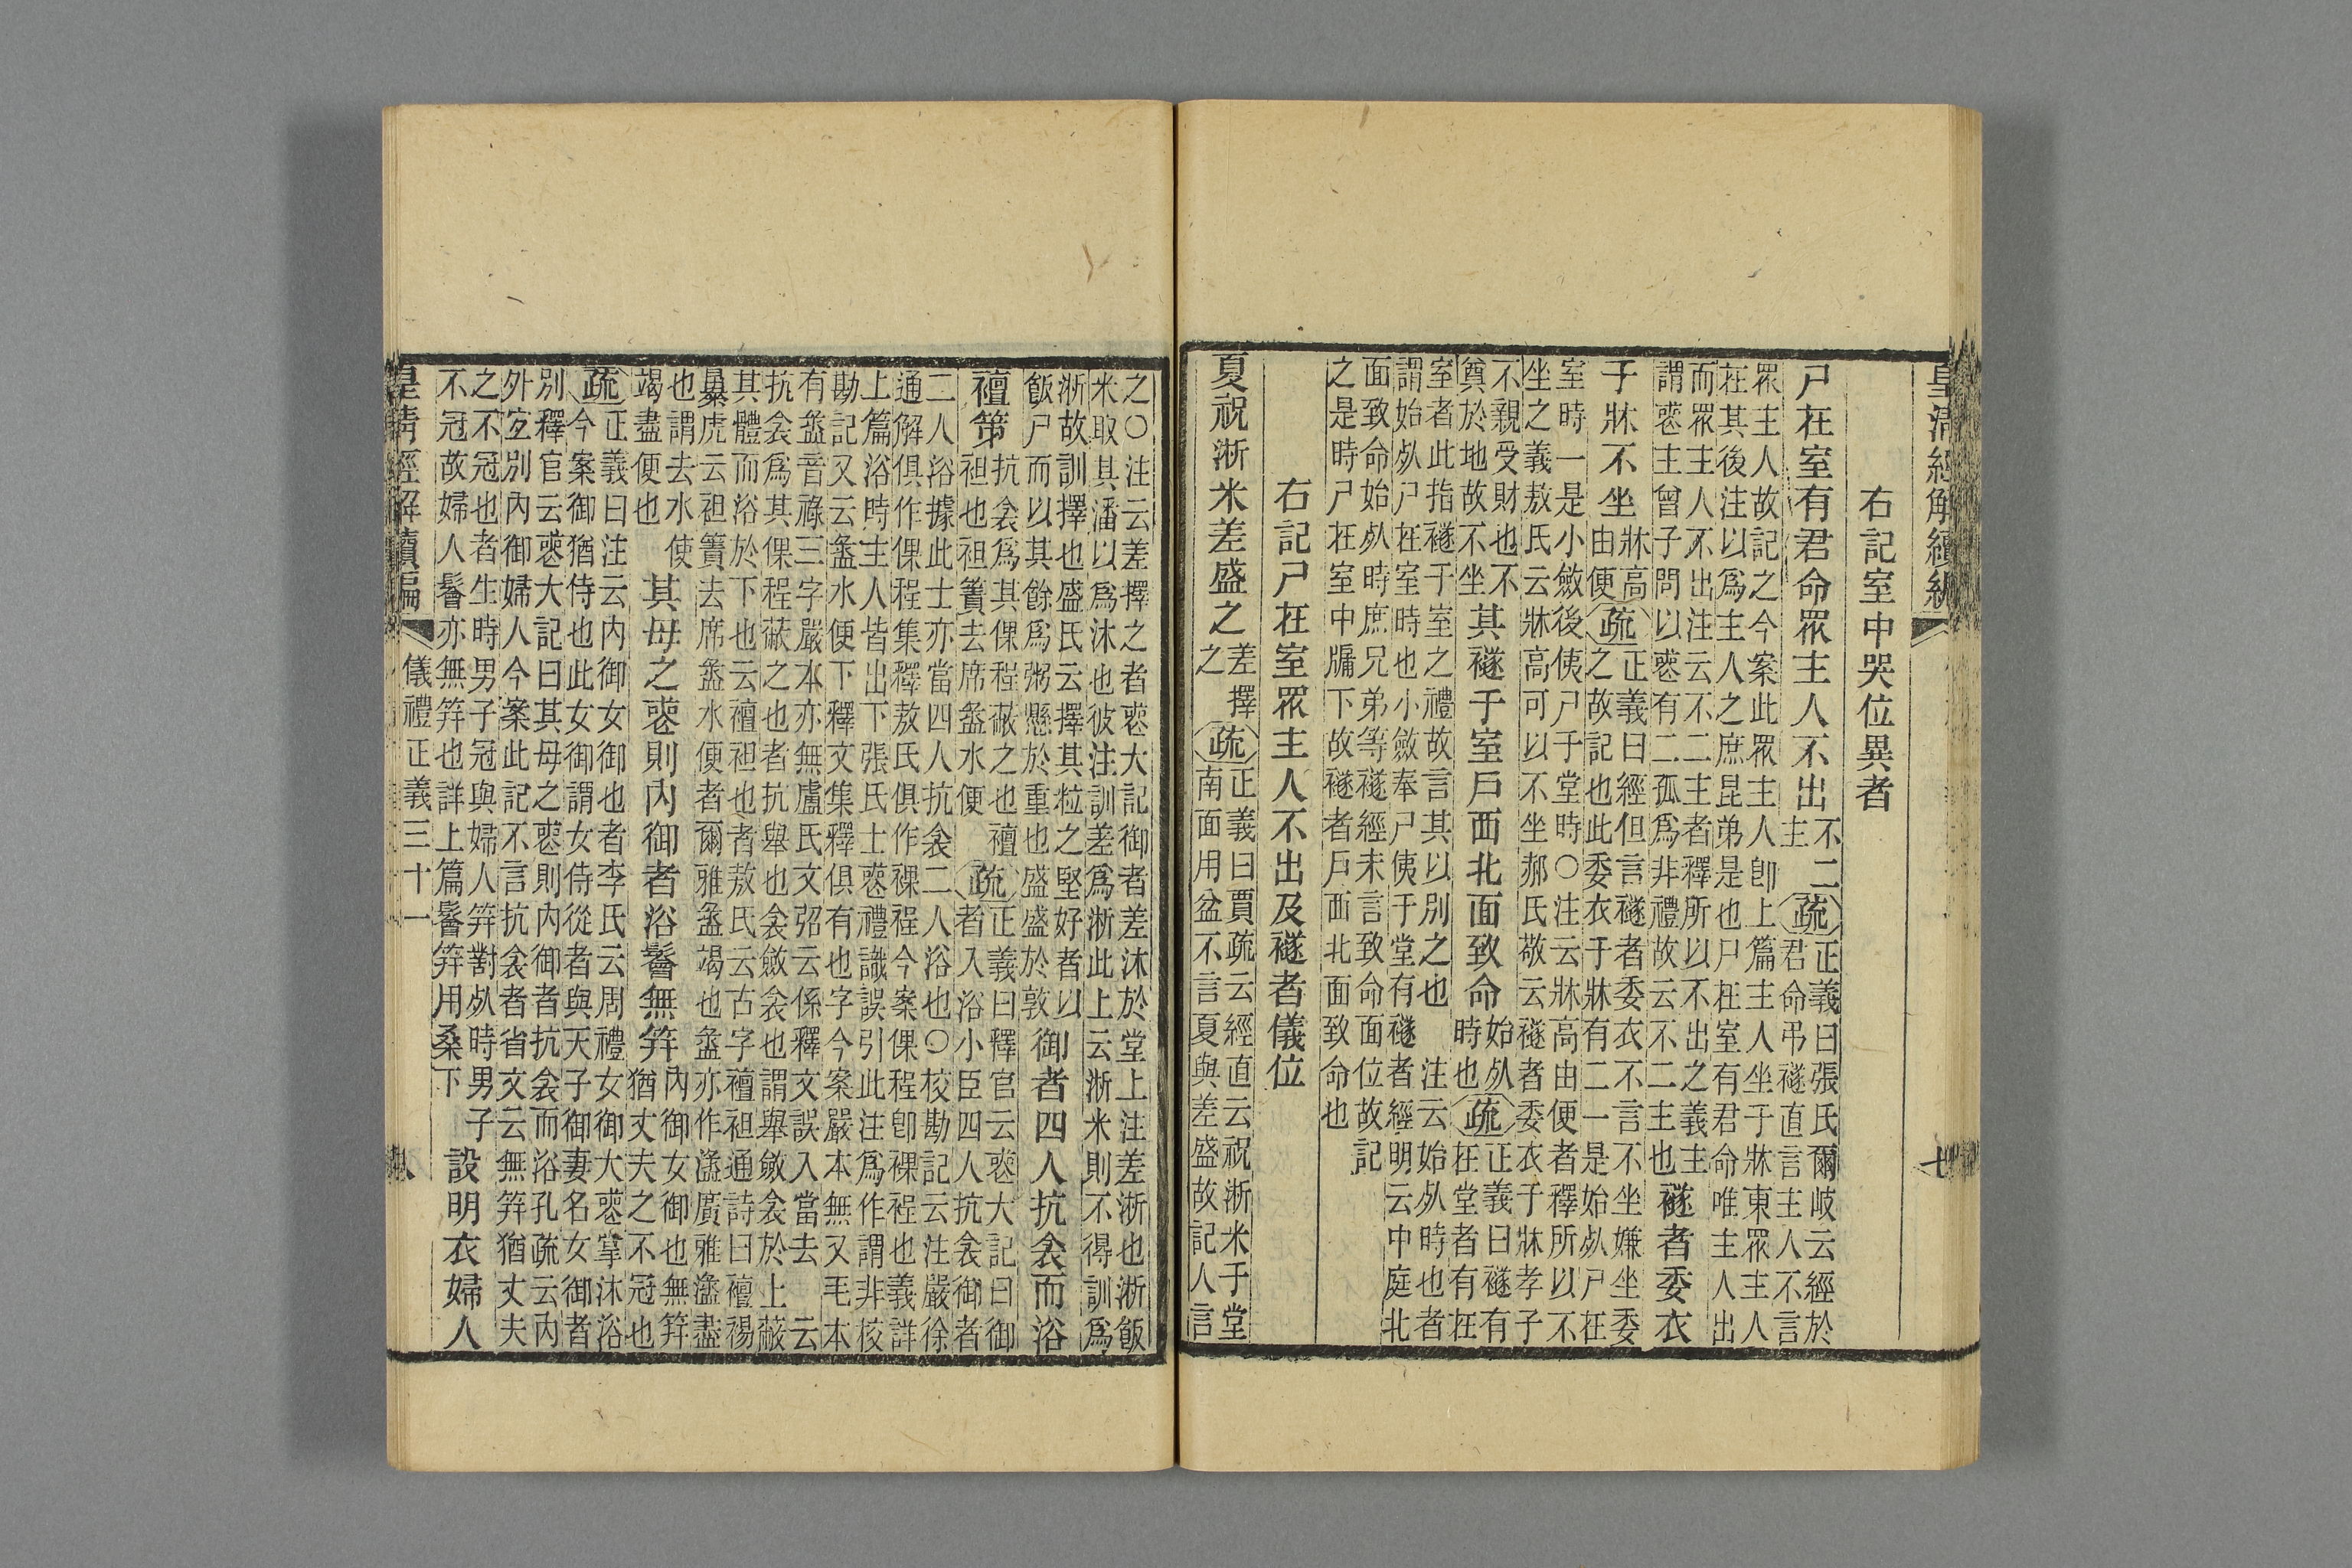 皇清經解續編
七
右記室中哭位異者
尸在室有君命眾主人不出
不二
主
疏
正義曰張氏爾岐云經於
君命弔襚直言主人不言
眾主人故記之今案此眾主人卽上篇主人坐于牀東眾主人
在其後注以爲主人之庶昆弟是也尸在室有君命唯主人出
而眾主人不出注云不二主者釋所以不出之義主
謂喪主曾子問以喪有二孤爲非禮故云不二主也
襚者委衣
于牀不坐
牀高
由便
疏
正義曰經但言襚者委衣不言不坐嫌坐委
之故記也此委衣于牀有二一是始死尸在
室時一是小斂後侇尸于堂時○注云牀高由便者釋所以不
坐之義敖氏云牀高可以不坐郝氏敬云襚者委衣于牀孝子
不親受財也不
奠於地故不坐
其襚于室戶西北面致命
始死
時也
疏
正義曰襚有
在堂者有在
室者此指襚于室之禮故言其以別之也 注云始死時也者
謂始死尸在室時也小斂奉尸侇于堂有襚者經明云中庭北
面致命始死時庶兄弟等襚經未言致命面位故記
之是時尸在室中牖下故襚者戶西北面致命也
右記尸在室眾主人不出及襚者儀位
夏祝淅米差盛之
差擇
之
疏
正義曰賈疏云經直云祝淅米于堂
南面用盆不言夏與差盛故記人言
之○注云差擇之者喪大記御者差沐於堂上注差淅也淅飯
米取其潘以爲沐也彼注訓差爲淅此上云淅米則不得訓爲
淅故訓擇也盛氏云擇其粒之堅好者以
飯尸而以其餘爲粥懸於重也盛盛於敦
御者四人抗衾而浴
襢笫
抗衾爲其倮裎蔽之也襢
袒也袒簀去席盝水便
疏
正義曰釋官云喪大記曰御
者入浴小臣四人抗衾御者
二人浴據此士亦當四人抗衾二人浴也○校勘記云注嚴徐
通解俱作倮程集釋敖氏俱作裸裎今案倮程卽裸裎也義詳
上篇浴時主人皆出下張氏士喪禮識誤引此注爲作謂非校
勘記又云盝水便下釋文集釋俱有也字今案嚴本無又毛本
有盝音祿三字嚴本亦無盧氏文弨云係釋文誤入當去 云
抗衾爲其倮程蔽之也者抗舉也衾斂衾也謂舉斂衾於上蔽
其體而浴於下也云襢袒也者敖氏云古字襢袒通詩曰襢裼
暴虎云袒簀去席盝水便者爾雅盝竭也盝亦作盪廣雅盪盡
也謂去水使
竭盡便也
其母之喪則內御者浴鬠無笄
內御女御也無笄
猶丈夫之不冠也
疏
正義曰注云內御女御也者李氏云周禮女御大喪掌沐浴
今案御猶侍也此女御謂女侍從者與天子御妻名女御者
別釋官云喪大記曰其母之喪則內御者抗衾而浴孔疏云內
外宜別內御婦人今案此記不言抗衾者省文云無笄猶丈夫
之不冠也者生時男子冠與婦人笄對死時男子
不冠故婦人鬠亦無笄也詳上篇鬠笄用桑下
設明衣婦人
皇清經解續編
儀禮正義三十一
八